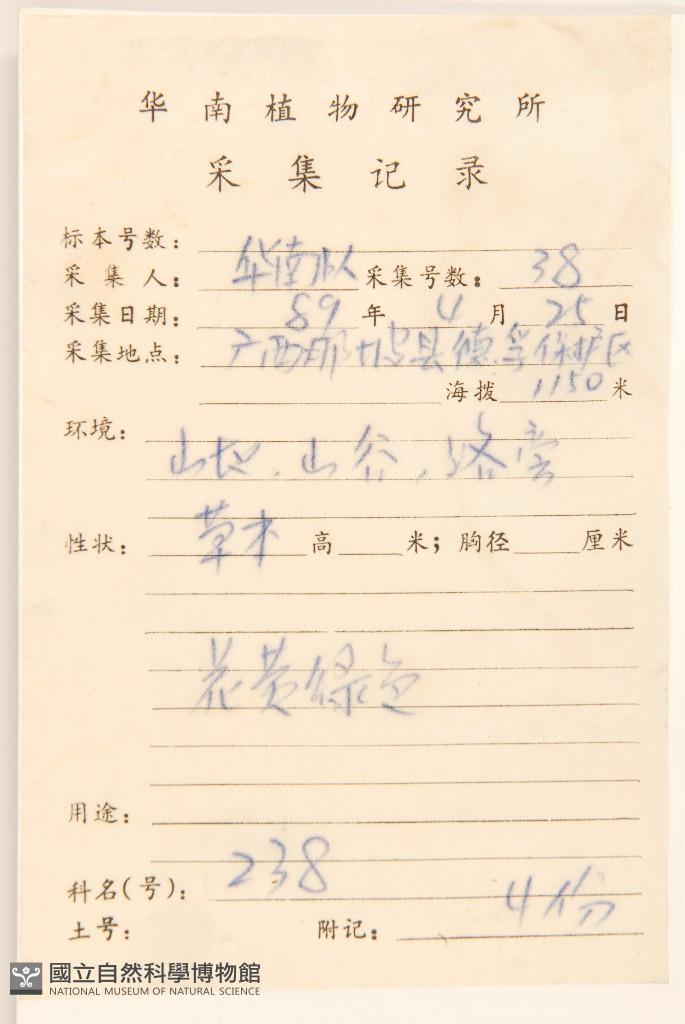 华南植物研究所
采集记录
标本号数：
采集人：华南队 采集号数：38
采集日期：89年4月25日
采集地点：广西那坡县德孚保护区
海拨 1150 米
环境：
山地，山谷，路旁
性状：草本 高 米；胸径 厘米
花黄绿色
用途：
科名（号）：238
土号： 附记：4份
國立自然科學博物館
NATIONAL MUSEUM OF NATURAL SCIENCE